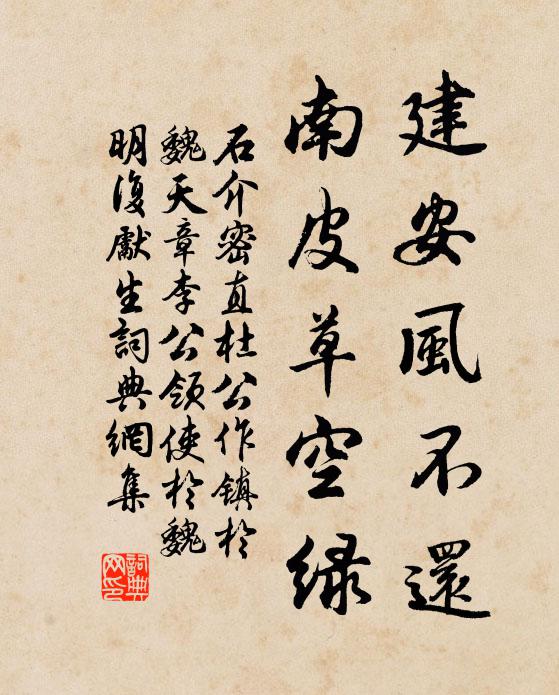 建安風不還
南皮草空緑
石介密直杜公作镇於
魏天章李公領使於魏
明復獻生詞典網集
詞典网印